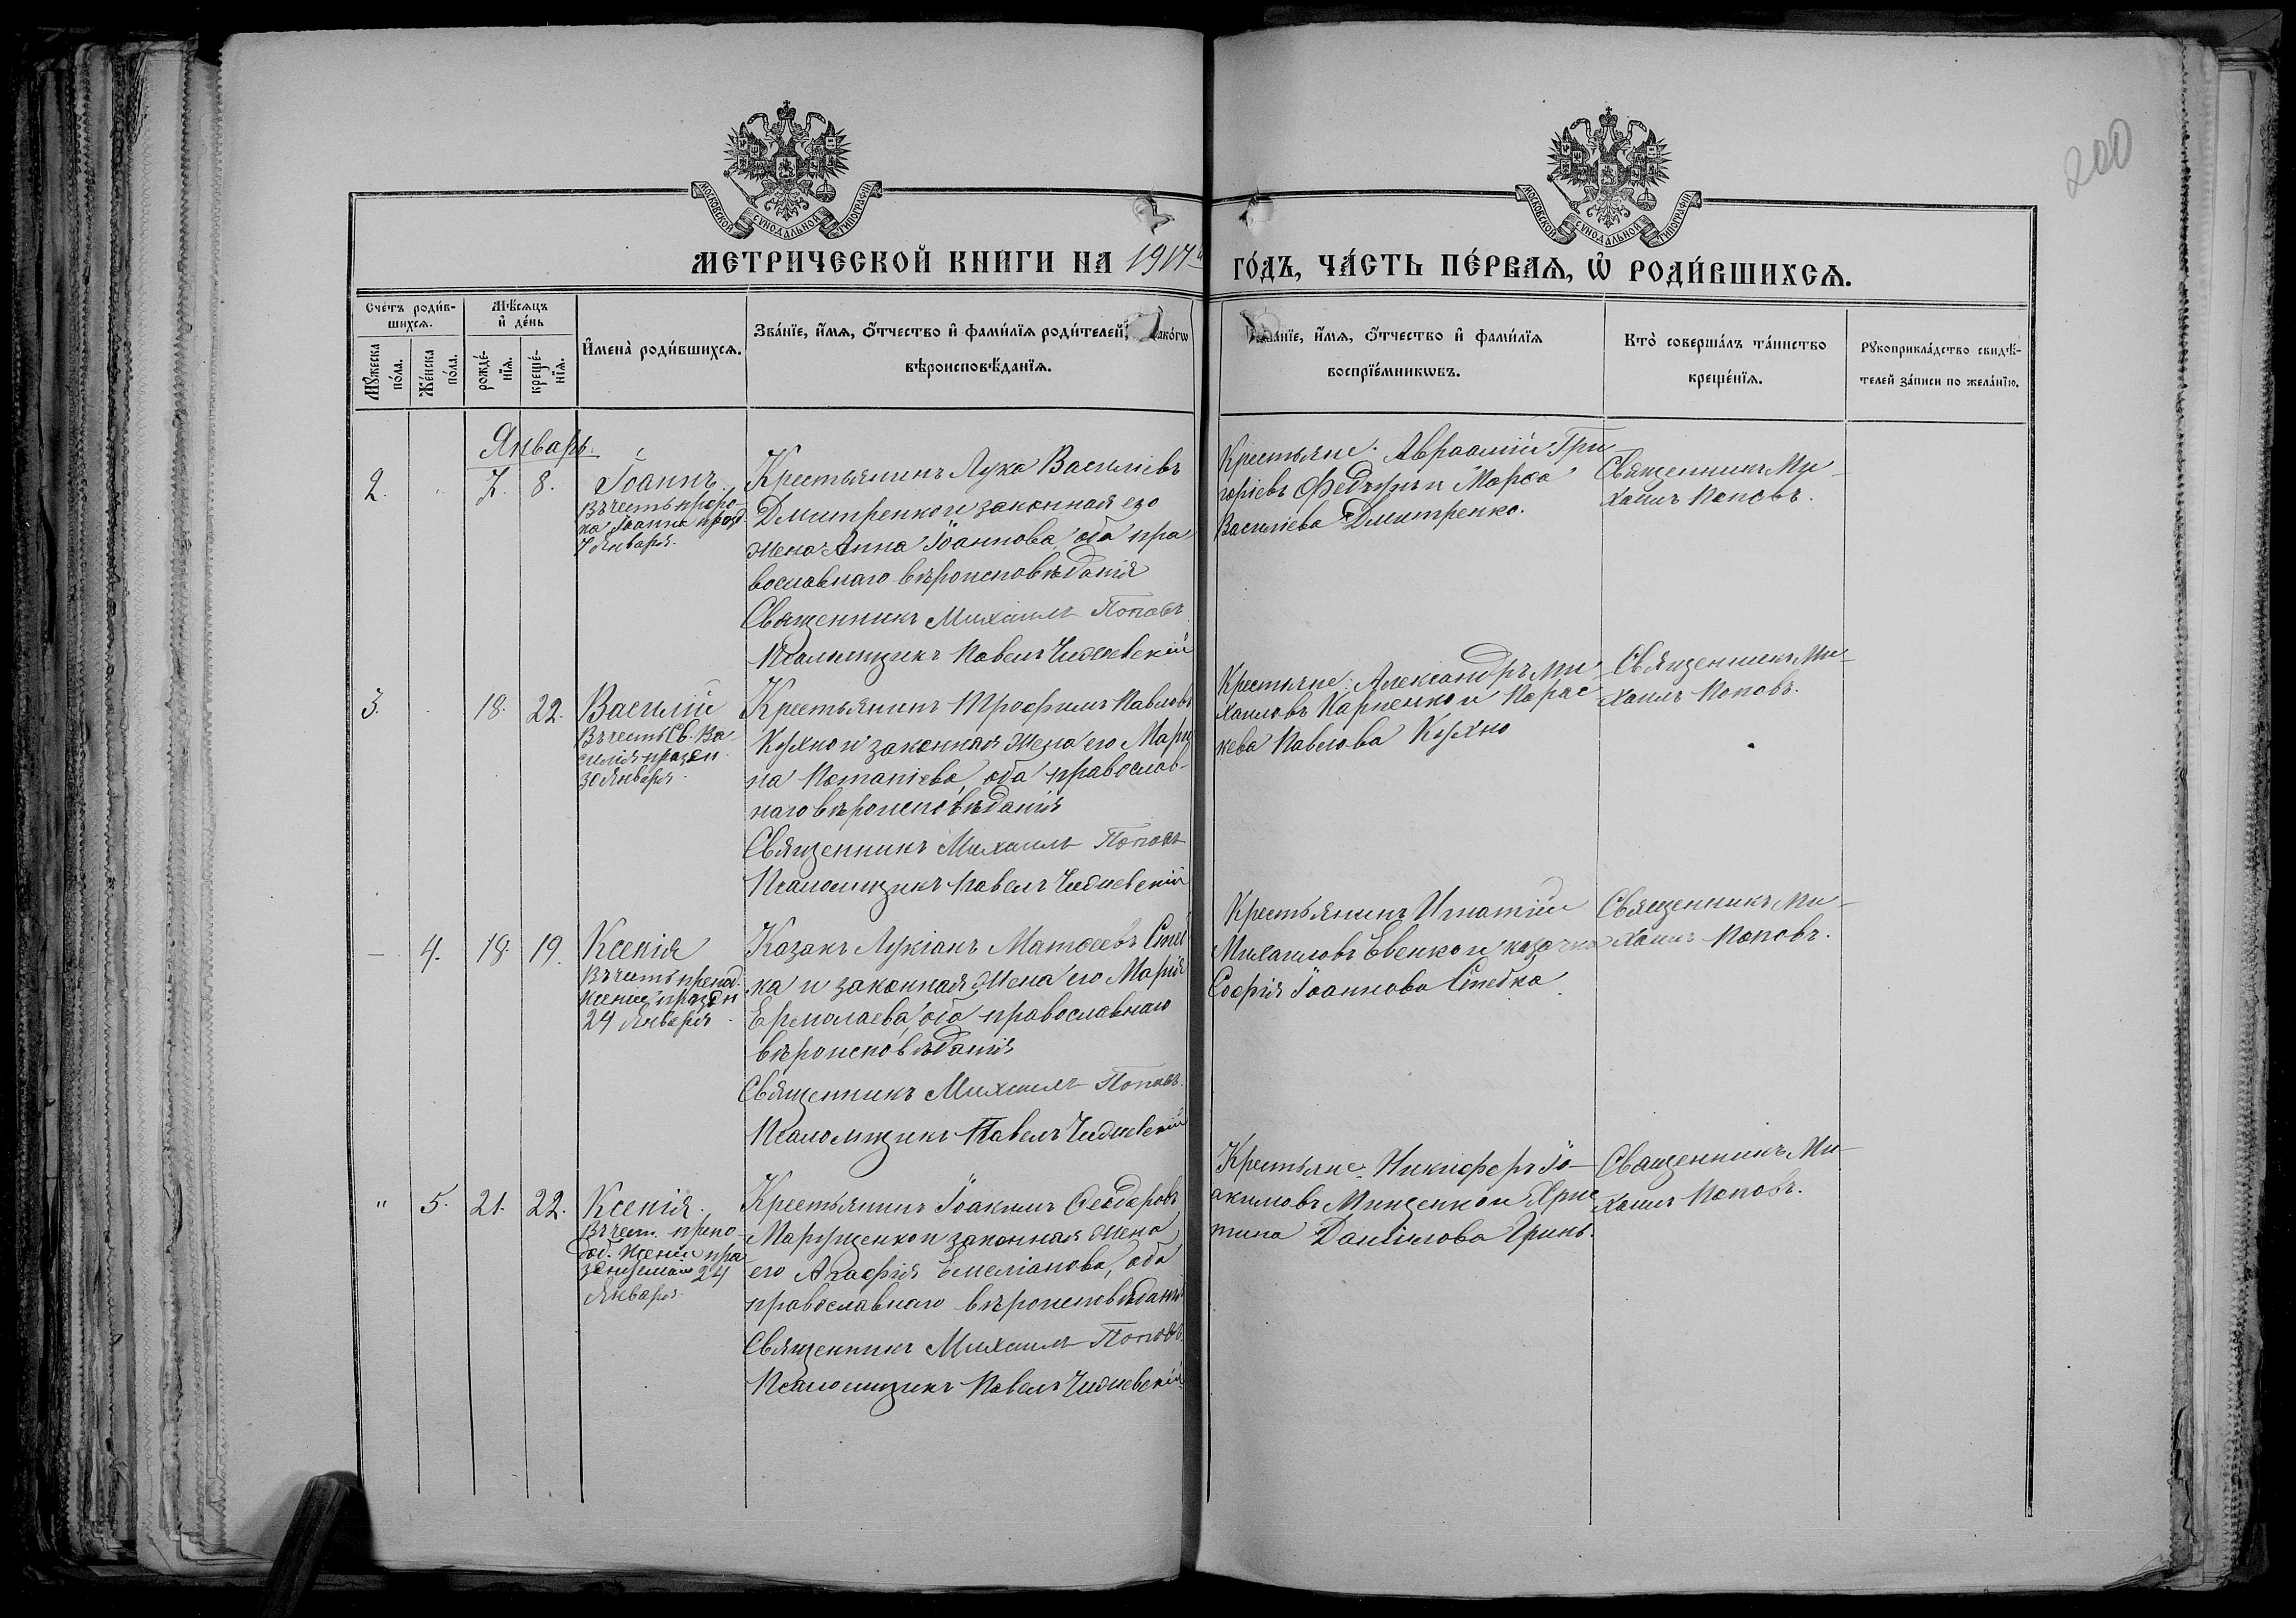 200
МОСКОВСКОЙ СѴНОДАЛЬНОЙ ТИПОГРАФІИ
МОСКОВСКОЙ СѴНОДАЛЬНОЙ ТИПОГРАФІИ
МЕТРИЧЕСКОЙ КНИГИ НА 1917 ГО́ДЪ, ЧА́СТЬ ПЕ́РВАѦ, Ѽ РОДИ́ВШИХСѦ.
Сче́тъ роди́в-
шихсѧ.
Мꙋ́жеска
по́ла.
Же́нска
по́ла.
Мѣ́сѧцъ
и҆ де́нь
рожде́-
нїѧ.
креще́-
нїѧ.
И҆мена̀ роди́вшихсѧ.
Зва́нїе, и҆́мѧ, ѻ҆́тчество и҆ фами́лїѧ роди́телей, и҆ како́гѡ
вѣроисповѣ́данїѧ.
Зва́нїе, и҆́мѧ, ѻ҆́тчество и҆ фами́лїѧ
воспрїе́мникѡвъ.
Кто̀ соверша́лъ та́инство
креще́нїѧ.
Рꙋкоприкла́дство свидѣ́-
телей за́писи по жела́нїю.
Январь.
2. " 7. 8.
Іоаннъ.
Въ честь проро-
ка Іоанна празд.
7 Января.
Крестьянинъ Лука Василіевъ
Дмитренко и законная его
жена Анна Іоаннова, оба пра
вославнаго вѣроисповѣданія
Священникъ Михаилъ Поповъ
Псаломщикъ Павелъ
Крестьяне: Авраамій Гри
горіевъ Федчунъ и Марѳа
Василіева Дмитренко.
Священникъ Ми-
хаилъ Поповъ.
3. 18. 22.
Василій
Въ честь Св. Ва
силія праздн.
30 Января.
Крестьянинъ Трофимъ Павловъ
Кухно и законная жена его Мари
на Потапіева, оба православ-
наго вѣроисповѣданія
Священникъ Михаилъ Поповъ
Псаломщикъ Павелъ
Крестьяне: Александръ Ми
хаиловъ Карпенко и Парас
кева Павлова Кухно
Священникъ Ми-
хаилъ Поповъ.
— 4. 18. 19.
Ксенія
Въ честь препод.
Ксеніи праздн
24 Января.
Казакъ Лукіанъ Матѳеевъ Стеб
ка и законная жена его Марія
Ермолаева, оба православнаго
вѣроисповѣданія
Священникъ Михаилъ Поповъ.
Псаломщикъ Павелъ
Крестьянинъ Игнатій
Михаиловъ Евенко и казачка
Софія Іоаннова Стебка
Священникъ Ми-
хаилъ Поповъ.
" 5. 21. 22.
Ксенія.
Въ чест. препо-
доб. Ксеніи пра
зднуемой 24
Января.
Крестьянинъ Іоакимъ Ѳеодоровъ
Марущенко и законная жена
его Агафія Емеліанова, оба
православнаго вѣроисповѣданія
Священникъ Михаилъ Поповъ.
Псаломщикъ Павелъ
Крестьяне: Никифоръ Іо-
акимовъ Мищенко и Хрис
тина Даніилова Гринь.
Священникъ Ми-
хаилъ Поповъ.